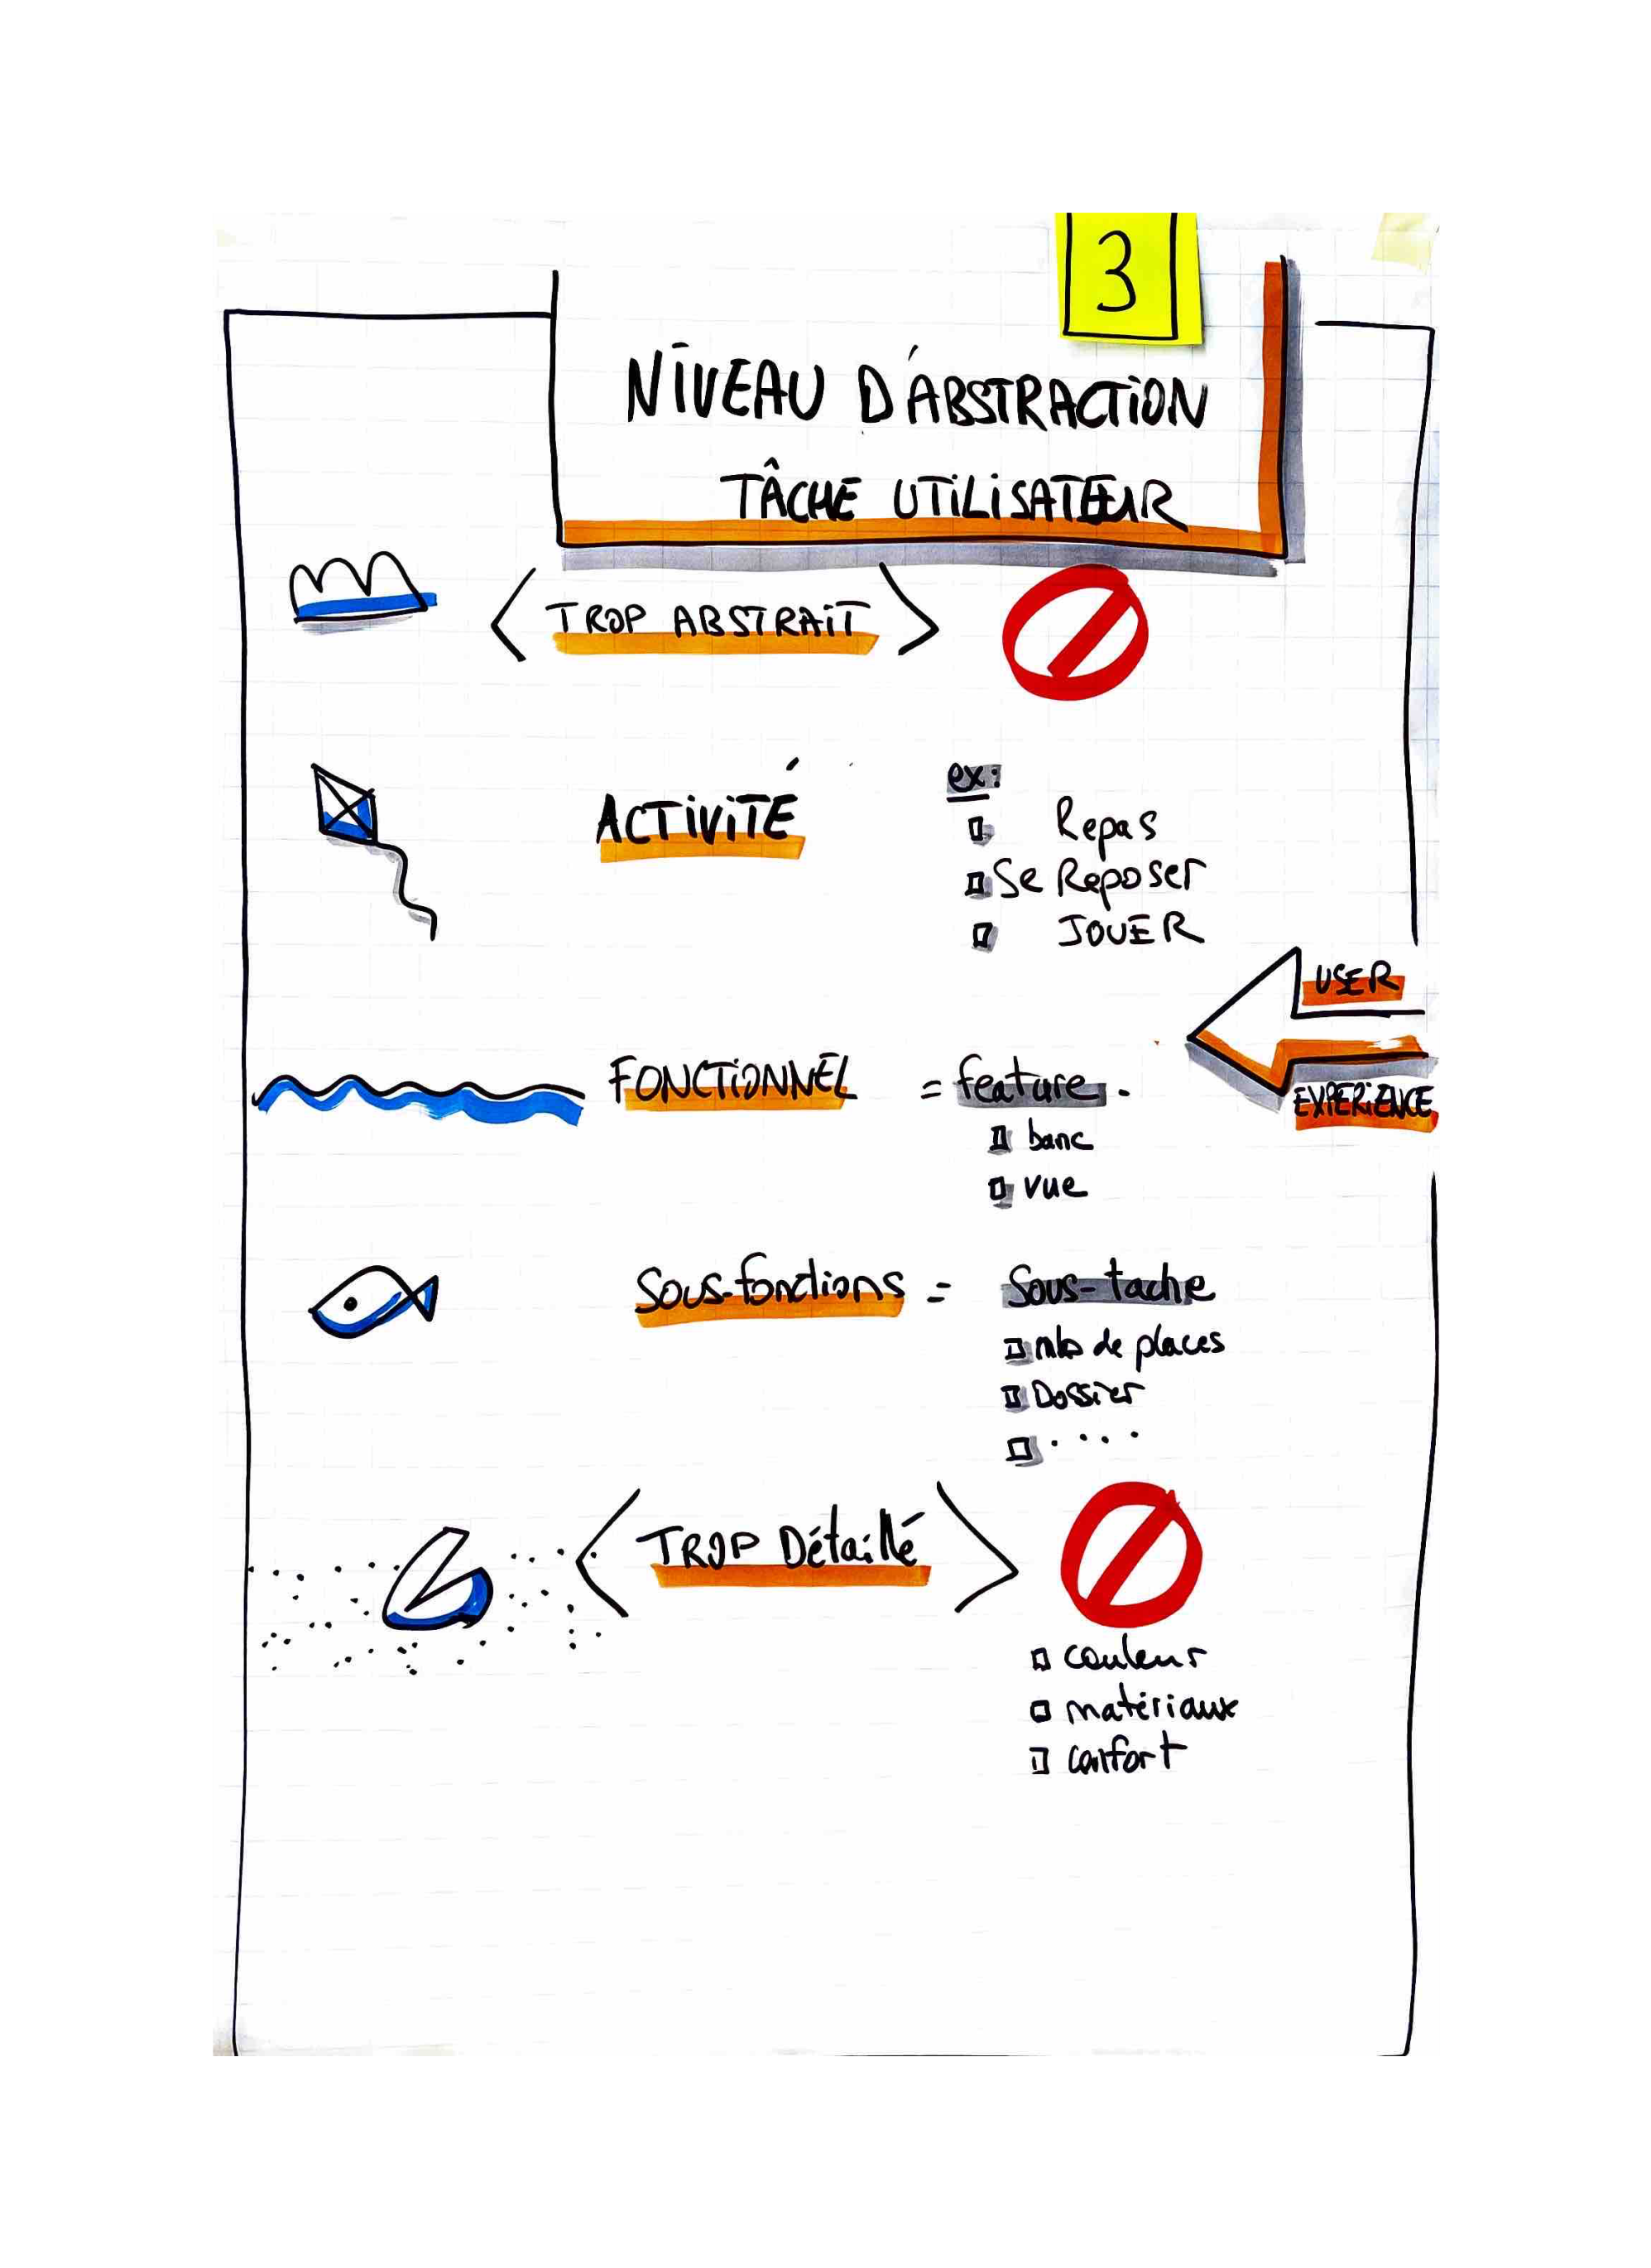 3
NIVEAU D'ABSTRACTION
TÂCHE UTILISATEUR
TROP ABSTRAIT
ACTIVITÉ
ex:
Repas
Se Reposer
JOUER
USER
EXPERIENCE
FONCTIONNEL = feature.
banc
vue
Sous-fonctions = Sous-tache
nb de places
Dossier
....
TROP Détaillé
couleur
matériaux
confort